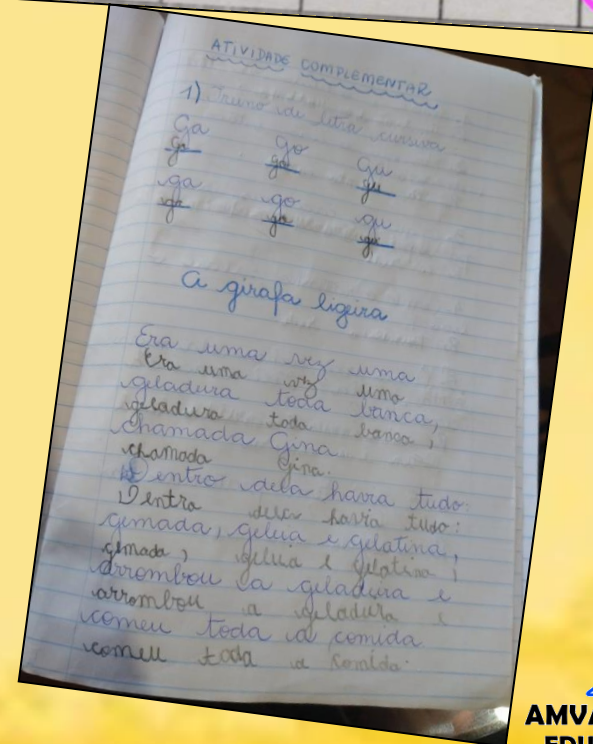 ATIVIDADE COMPLEMENTAR
1) Treino de letra cursiva
Ga go gu
ga go gu
ga go gu
ga go gu
A girafa ligeira
Era uma vez uma
Era uma vez uma
geladura toda banca,
geladura toda banca,
chamada Gina
chamada Gina.
Dentro dela havia tudo:
Dentro dela havia tudo:
gemada, geleia e gelatina,
gemada, geleia e gelatina,
arrombou a geladura e
arrombou a geladura e
comeu toda a comida
comeu toda a comida.
AMVA
EDU